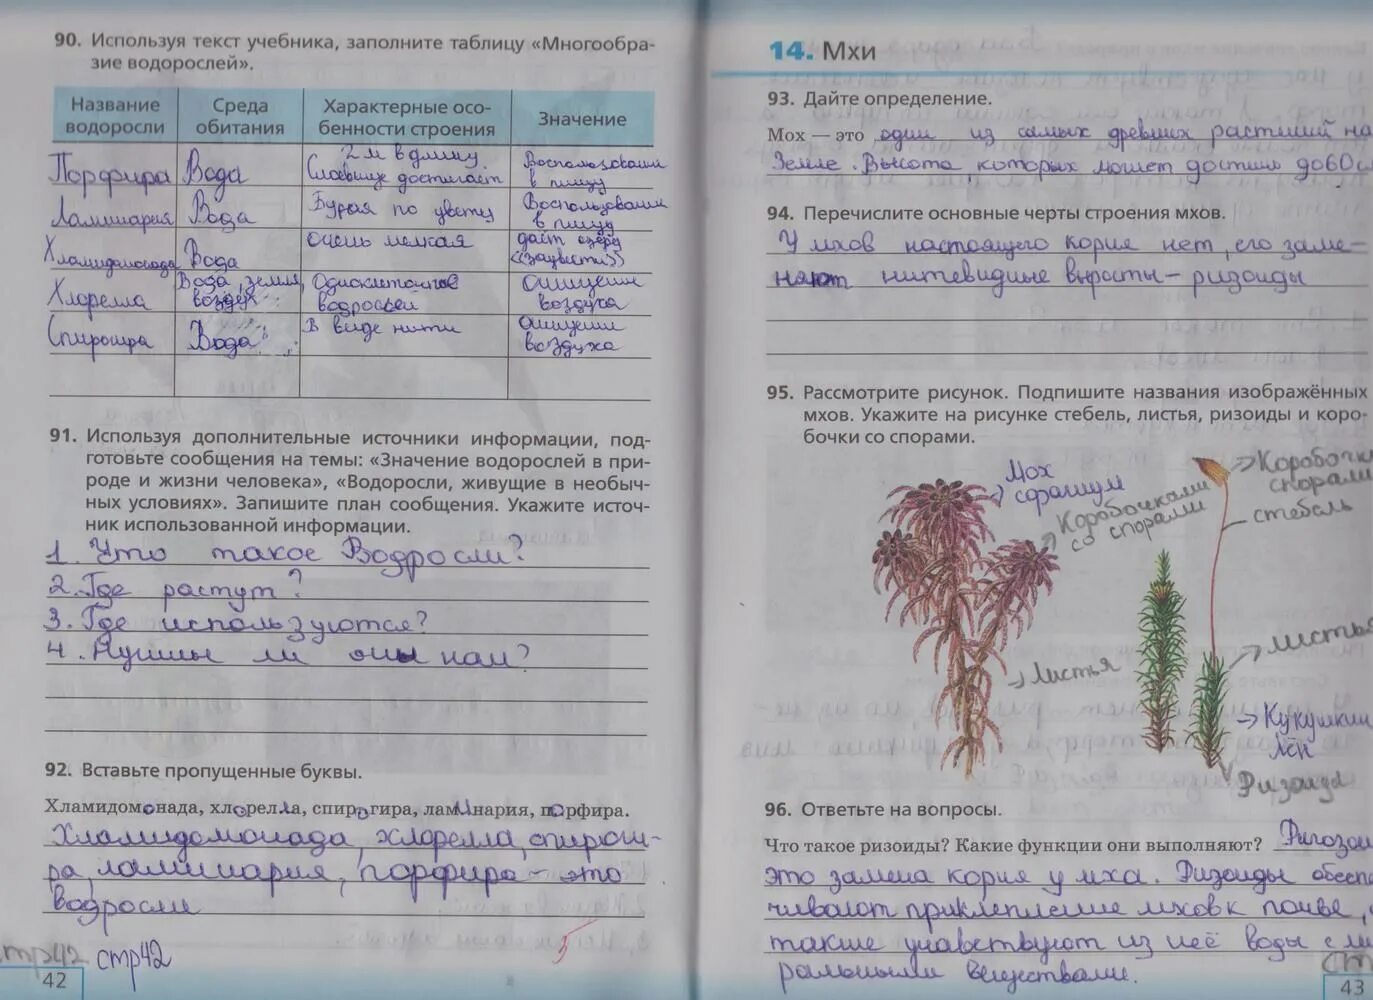 90. Используя текст учебника, заполните таблицу «Многообра-
зие водорослей».
Название водоросли
Среда обитания
Характерные осо-бенности строения
Значение
Порфира Вода 2 м в длину. Слоевище достигает Воспользовании в пищу
Ламинария Вода Бурая по цвету Воспользовании в пищу
Хламидомонада Вода очень мелкая даёт озеру
Хлорелла Вода, земля, воздух Одноклеточное водрослей Очищении воздуха
Спирогира Вода В виде нити Очищении воздуха
91. Используя дополнительные источники информации, под-
готовьте сообщения на темы: «Значение водорослей в при-
роде и жизни человека», «Водоросли, живущие в необыч-
ных условиях». Запишите план сообщения. Укажите источ-
ник использованной информации.
1. Что такое Водросли?
2. Где растут?
3. Где используются?
4. Нужны ли они нам?
92. Вставьте пропущенные буквы.
Хламидомонада, хлорелла, спирогира, ламинария, порфира.
Хламидомонада, хлорелла, спироги-
ра, ламинария, порфира - это
водросли
5
стр42 стр42
42
14. Мхи
93. Дайте определение.
Мох — это один из самых древних растений на
Земле. Высота, которых может достичь до 60 с
94. Перечислите основные черты строения мхов.
У мхов настоящего корня нет, его заме-
няют нитевидные выросты - ризоиды
95. Рассмотрите рисунок. Подпишите названия изображённых
мхов. Укажите на рисунке стебель, листья, ризоиды и коро-
бочки со спорами.
Мох
сфагнум
Коробочками
со спорами
Коробочки
спорами
стебель
Листья
листья
Кукушкин
лён
Ризоиды
96. Ответьте на вопросы.
Что такое ризоиды? Какие функции они выполняют? Ригозои
это замена корня у мха. Ризоиды обеспе
чивают приклепление мхов к почве,
также учавствуют из неё воды с ми
ральными веществами.
ст
43